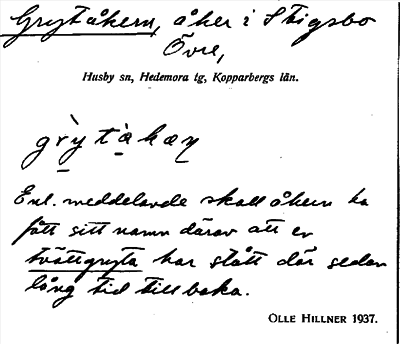 Grytåkern, åker i Stigsbo
Övre,
Husby sn, Hedemora tg, Kopparbergs län.
grỳtàkæṇ
Enl. meddelande skall åkern ha
fått sitt namn därav att en
tvättgryta har stått där sedan
lång tid tillbaka.
OLLE HILLNER 1937.